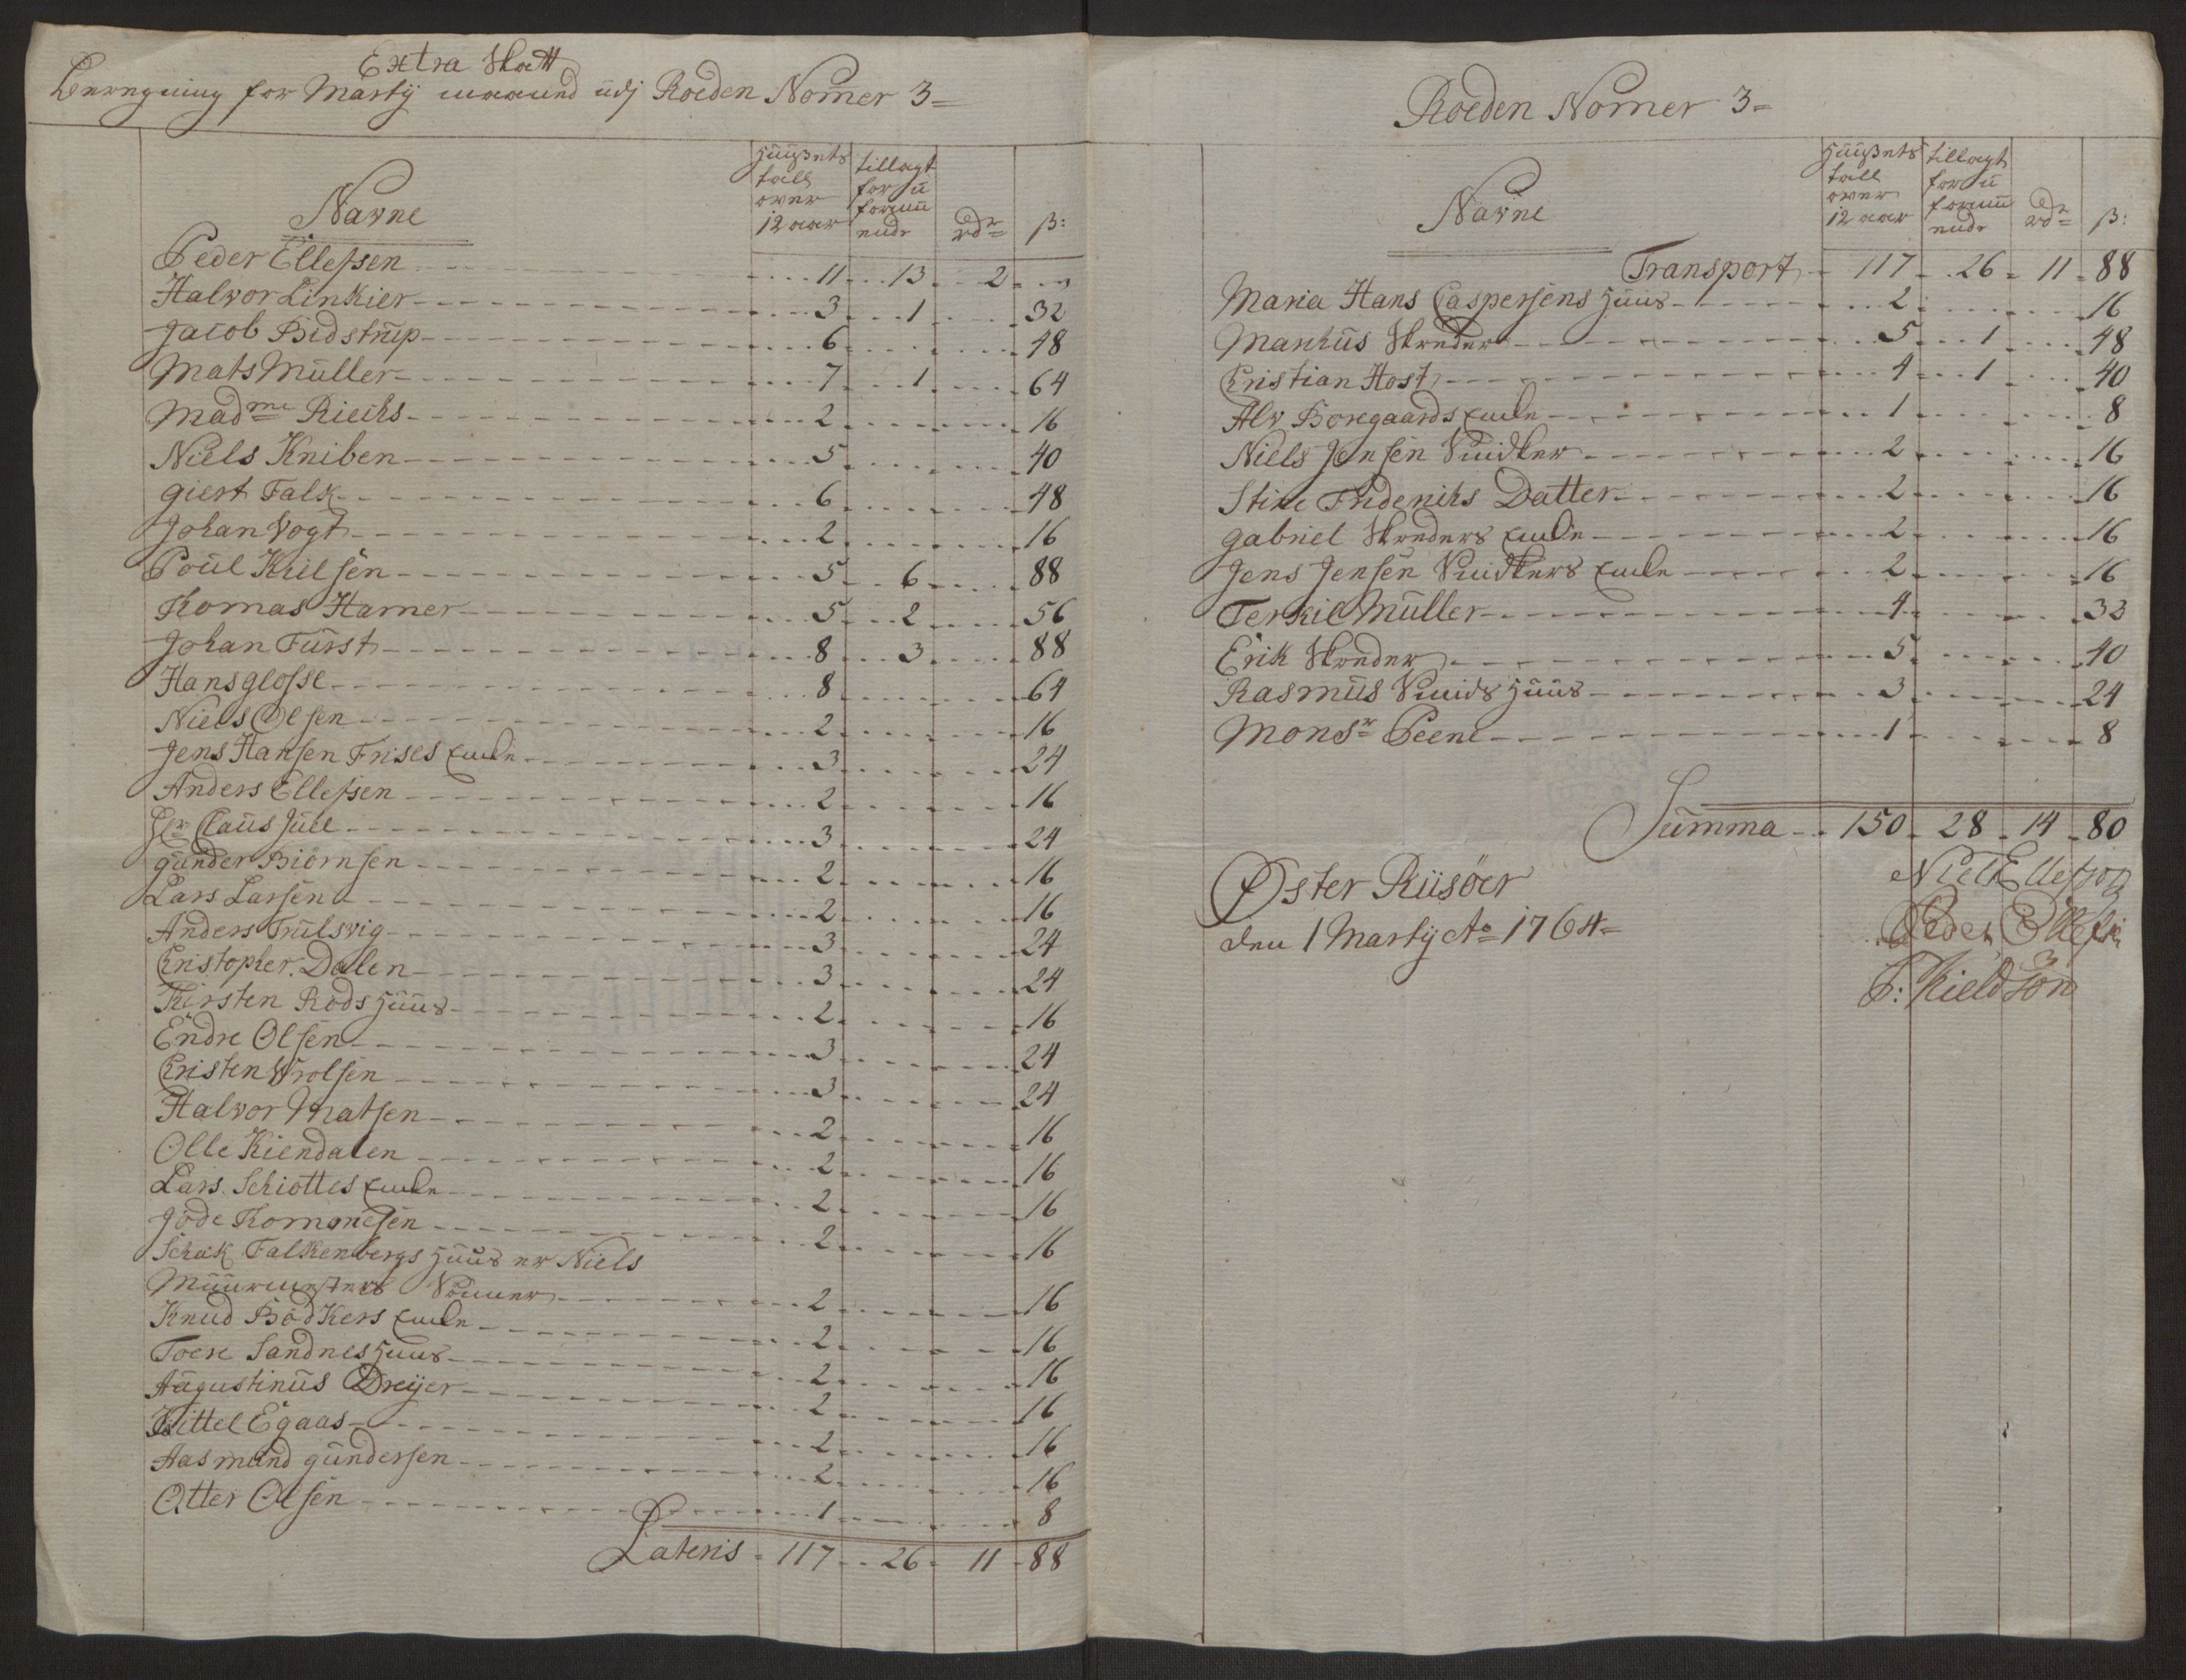 Extra Skatt
Beregning for Martij maaned udj Roeden Nomer 3=
Navne
Huusets tall over 12 aar
tillagt for u formuende
rdr
ß:
Peder Ellefsen 11 13 2
Halvor Linkier 3 1 32
Jacob Bidstrup 6 48
Mats Müller 7 1 64
Madme Riecks 2 16
Niels Kniben 5 40
Giert Falk 6 48
Johan Vogt 2 16
Poül Kiilsen 5 6 88
Thomas Hamer 5 2 56
Johan Fürst 8 3 88
Hans Glosse 8 64
Niels Olsen 2 16
Jens Hansen Frises Encke 3 24
Anders Ellefsen 2 16
Hr Claus Juel 3 24
Gunder Biörnsen 2 16
Lars Larsen 2 16
Anders Trülsvig 3 24
Christopher Dalen 3 24
Kirsten Röds Huus 2 16
Endre Olsen 3 24
Christen Wrolsen 3 24
Halvor Matsen 2 16
Olle Kiendalen 2 16
Lars Schiöttes Encke 2 16
Jöde Thomenesen 2 16
Schak Falkenbergs Huus er Niels
Muurmesters Qvinner 2 16
Knud Bödkers Encke 2 16
Toere Sandnes Huus 2 16
Augustinus Dreijer 2 16
Kittel Egaas 2 16
Aasmund Gundersen 2 16
Otter Olsen 1 8
Lateris 117 26 11 88
Roeden Nomer 3=
Navne
Huusets tall over 12 aar
tillagt for u formuende
rdr
ß:
Transport 117 26 11 88
Maria Hans Caspersens Huus 2 16
Markus Skreder 5 1 48
Christian Host 4 1 40
Alv Boregaards Encke 1 8
Niels Jensen Snidker 2 16
Stine Friderichs Datter 2 16
Gabriel Skreders Encke 2 16
Jens Jensen Snidkers Encke 2 16
Terkil Müller 4 32
Erik Skreder 5 40
Rasmus Smids Huus 3 24
Monsr Peene 1 8
Summa 150 28 14 80
Øster Riisöer
den 1 Martij Ao 1764
Niels Ellefsøn
Peder Ellefsen
P: Kieldsøn